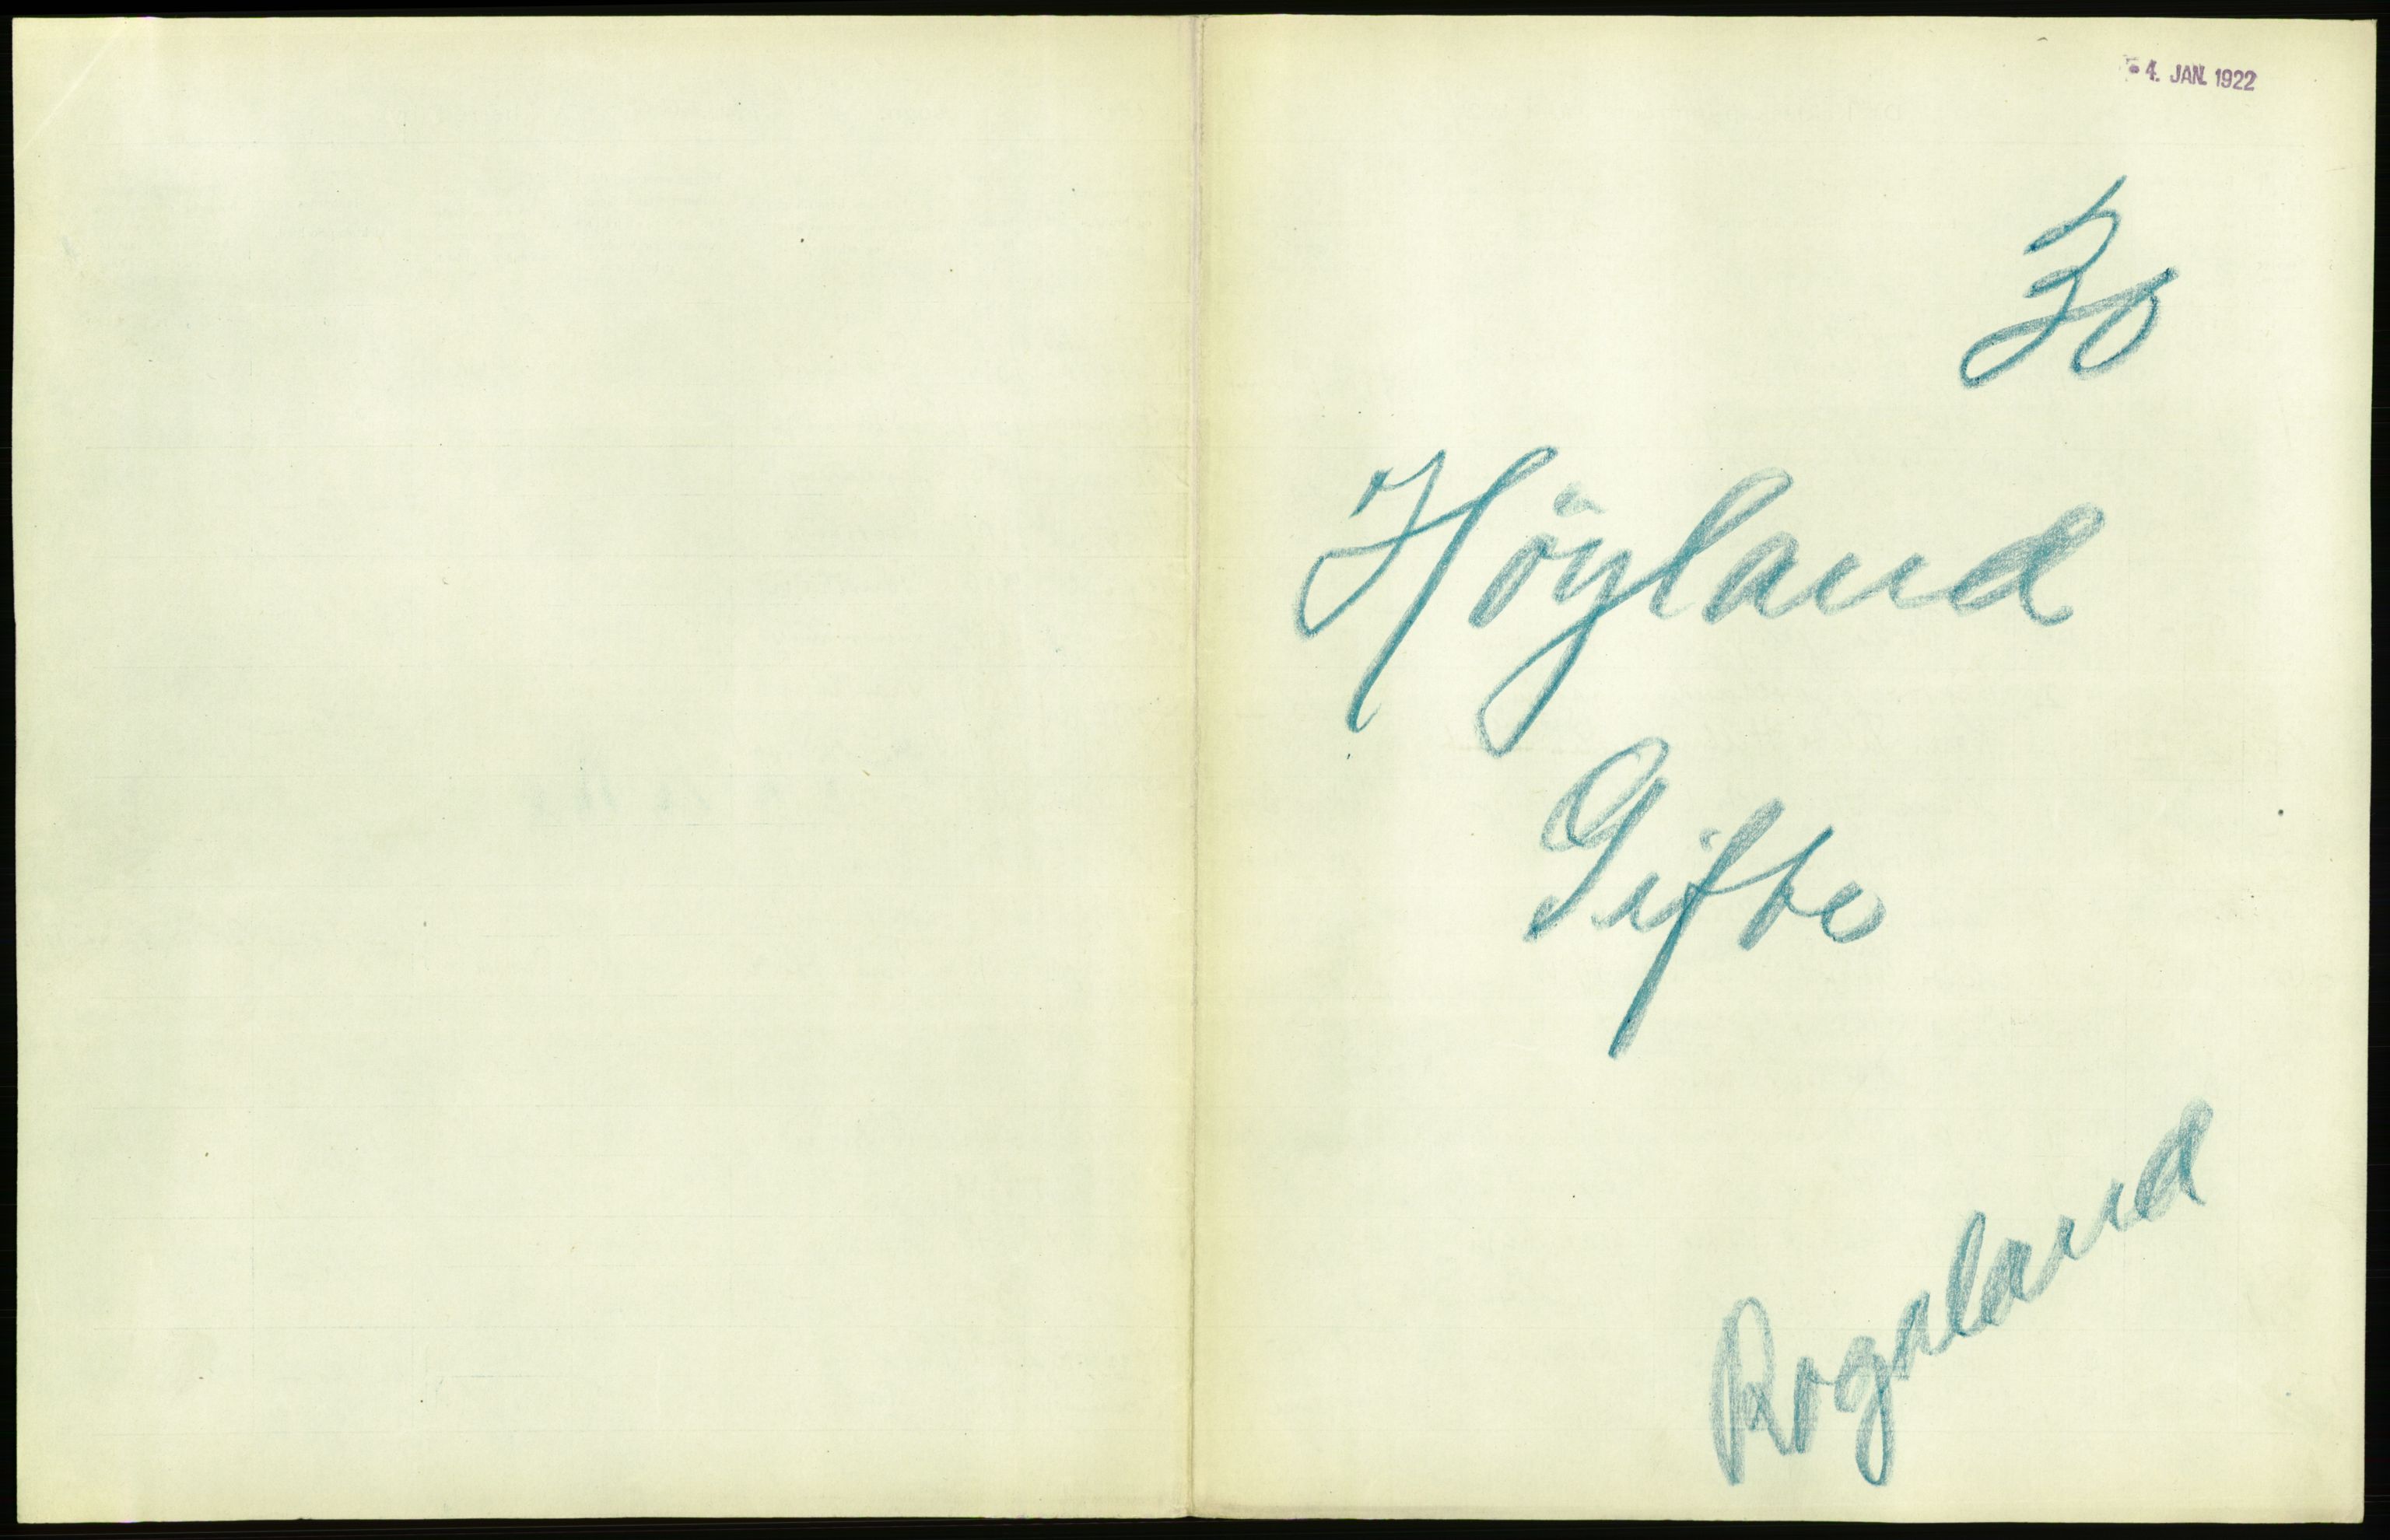 4. JAN. 1922
30
Höyland
Gifte
Rogaland